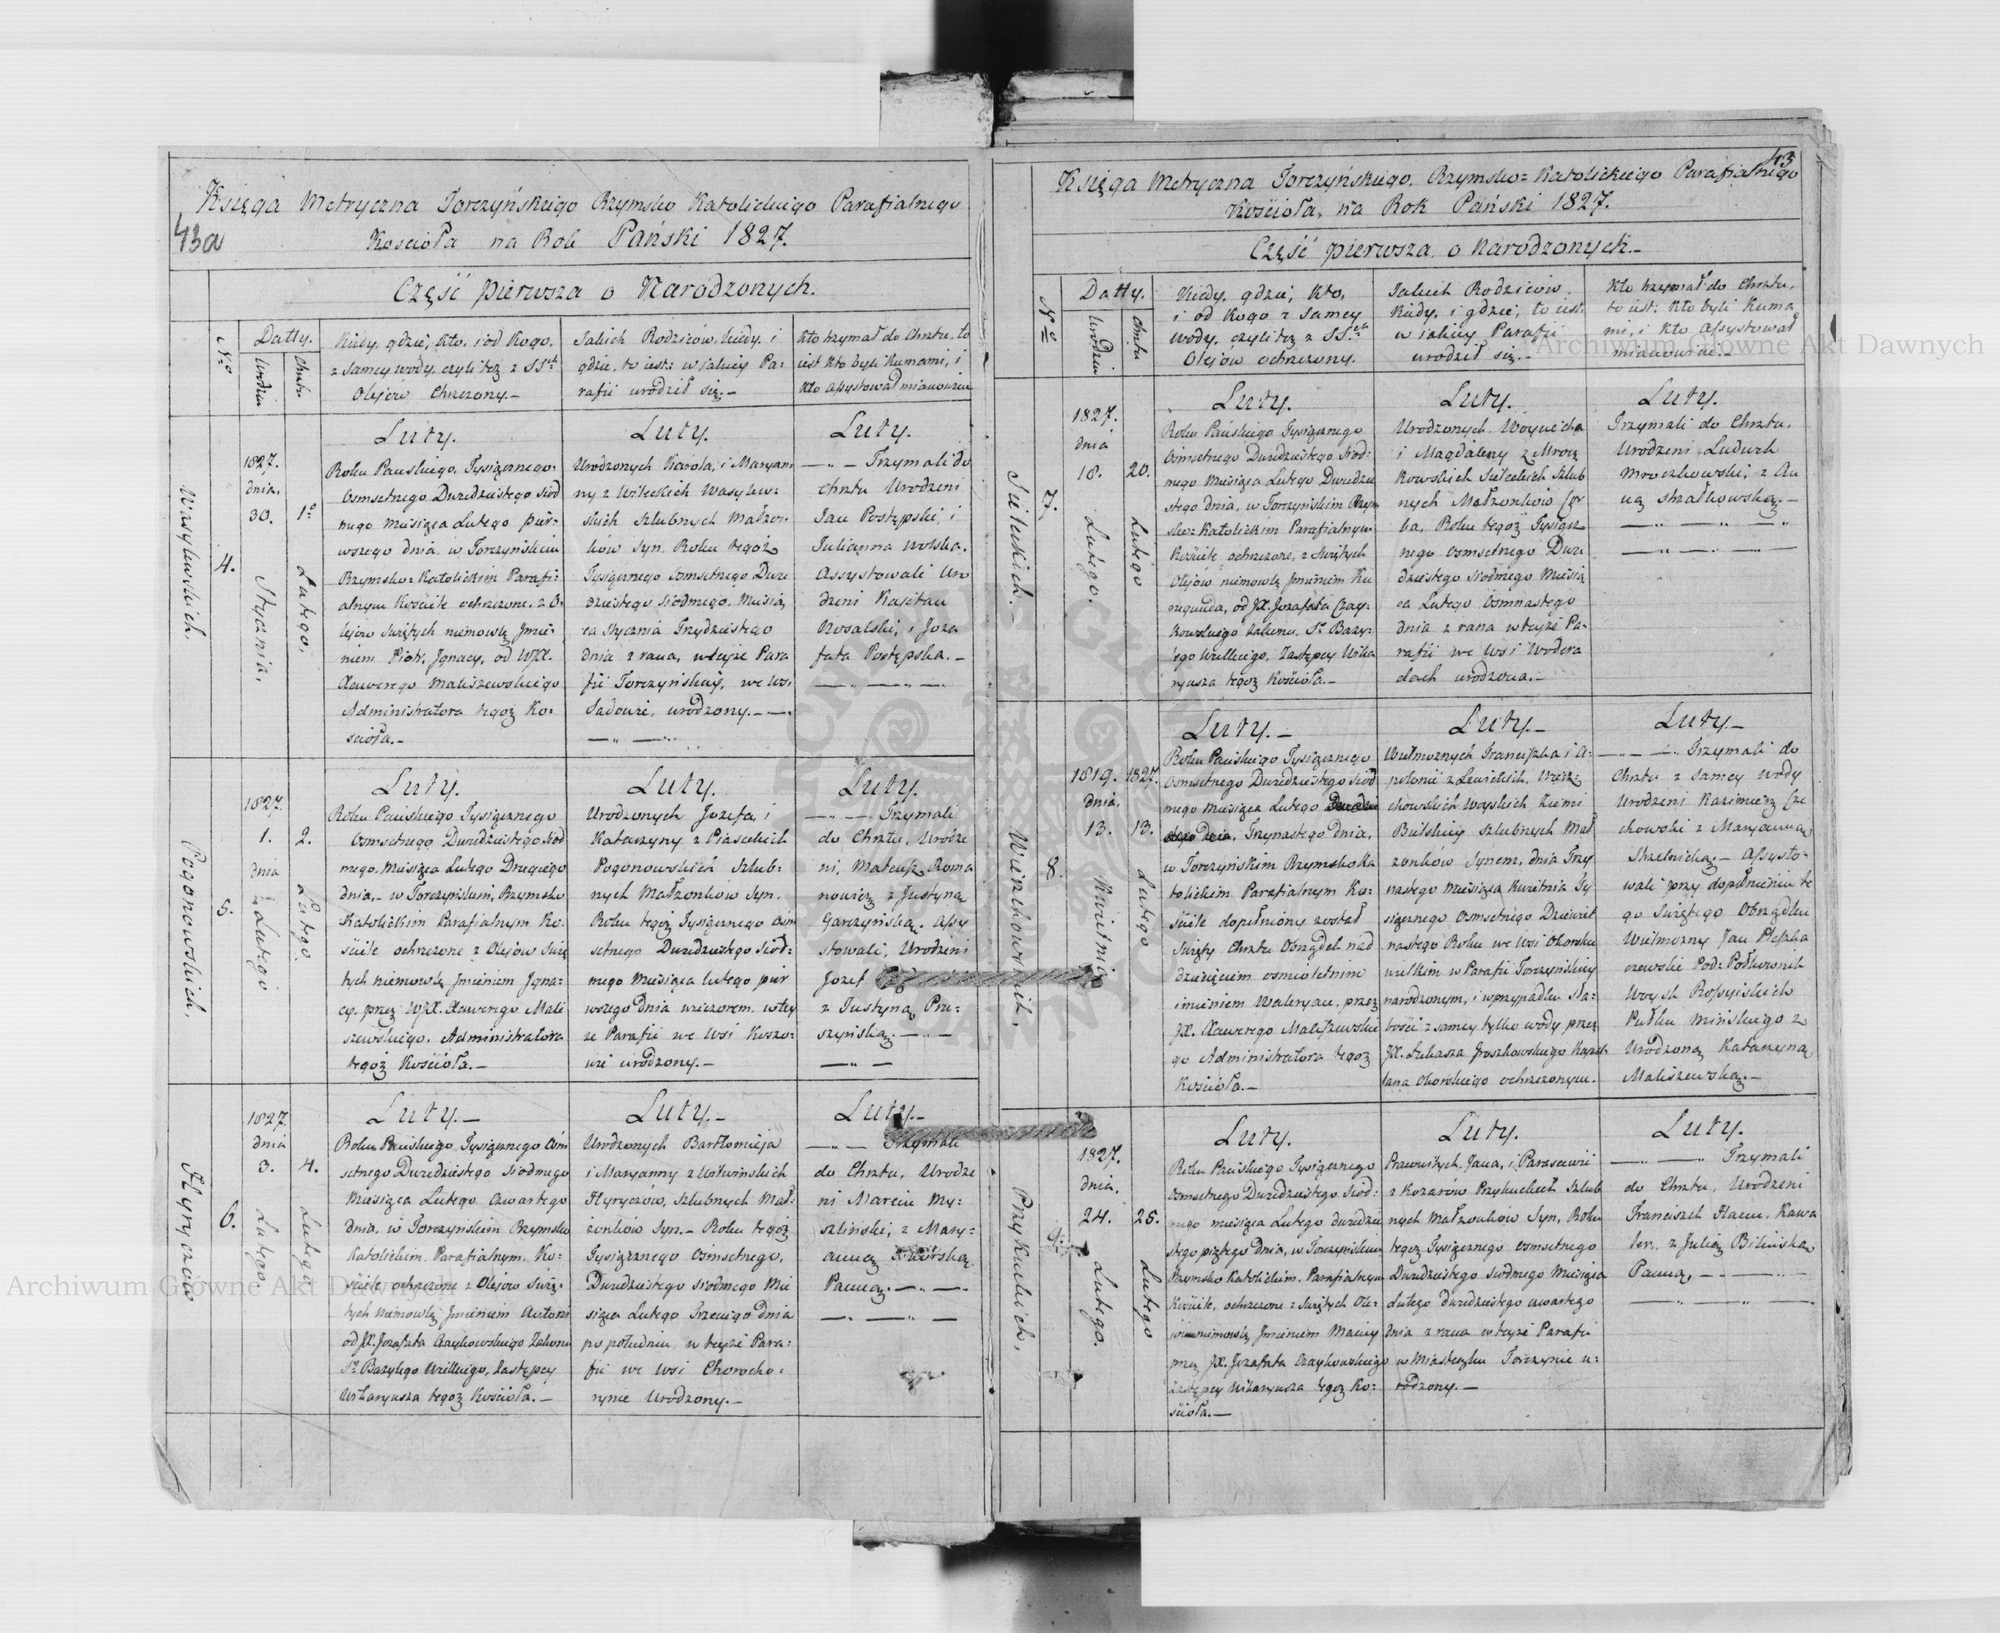 Księga Metryczna Torczyńskiego Rzymsko Katolickiego Parafialnego
43a
Kościoła na Rok Pański 1827.
Część pierwsza o Narodzonych.
Nro
Datty.
Urodzin
Chrztu
Kiedy, gdzie, kto, i od Kogo,
z samey wody, czyli też z SSch
Olejów Chrzczony.—
Jakich Rodziców, kiedy, i
gdzie, to iest: w iakiey Pa-
rafii urodził się.—
Kto trzymał do Chrztu, to
iest kto byli Kumami, i
kto assystował mianowicie
Wasylewskich.
4.
1827.
dnia,
30.
Stycznia,
1o
Lutego,
Luty.
Roku Pańskiego, Tysiącznego-
Osmsetnego Dwudziestego siod
mego Miesiąca Lutego pier-
wszego dnia w Torczyńskim
Rzymsko-Katolickim Parafi-
alnym Kościele ochrzczone z O-
lejów świętych niemowlę Jmie-
niem Piotr, Jgnacy, od WJX.
Xawerego Maliszewskiego
Administratora tegoż Ko-
ścioła.—
Luty.
Urodzonych Karola, i Maryan-
ny z Witeckich Wasylew-
skich szlubnych Małżon-
ków Syn. Roku tegoż
Tysiącznego osmsetnego Dwu
dziestego siodmego. Miesią
ca Stycznia Trzydziestego
dnia z rana, w teyże Para
fii Torczyńskiey, we wsi
Sadowie, urodzony.—
Luty.
Trzymali do
Chrztu Urodzeni
Jan Postępski, i
Julianna Wolska.
Assystowali Uro
dzeni Kajetan
Rosalski, i Joza
fata Postępska.—
Pogonowskich,
5.
1827.
1.
dnia
Lutego
2.
Lutego.
Luty.
Roku Pańskiego Tysiącznego
Osmsetnego Dwudziestego siod
mego, Miesiąca Lutego Drugiego
dnia,- w Torczyńskim, Rzymsko
Katolickim Parafialnym Ko-
ściele ochrzczone z Olejów Świę
tych niemowlę Jmieniem Jgna-
cy, przez WJX. Xawerego Mali
szewskiego, Administratora
tegoż Kościoła.—
Luty.
Urodzonych Jozefa, i
Katarzyny z Piaseckich
Pogonowskich Szlub-
nych Małżonkow Syn.
Roku tegoż Tysiącznego osm
setnego Dwudziestego siod-
mego Miesiąca lutego pier
wszego dnia wieczorem w tey
że Parafii we wsi Koszo-
wie urodzony.—
Luty.
Trzymali
do Chrztu, Urodze
ni, Mateusz Roma
nowicz z Justyną
Garczyńską. Assy
stowali, Urodzeni
Jozef
z Justyną Pru-
szyńską.—
Hyryczów
6.
1827.
dnia
3.
Lutego,
4.
Lutego
Luty.—
Roku Pańskiego Tysiącznego Osm
setnego Dwudziestego siodmego
Miesiąca Lutego czwartego
dnia, w Torczyńskim Rzymsko
Katolickim, Parafialnym, Ko-
ściele ochrzczone z Olejów Świę-
tych niemowlę Jmieniem Antoni
od JX. Jozafata Czaykowskiego Zakonu
So Bazylego Wielkiego, Zastępcy
Wikaryusza tegoż Kościoła.—
Luty.—
Urodzonych Bartłomieja
i Maryanny z Litwińskich
Hyryczów, Szlubnych Mał-
żonków Syn.— Roku tegoż
Tysiącznego Osmsetnego,
Dwudziestego siodmego Mie
siąca Lutego Trzeciego dnia
po południu w teyże Para-
fii we wsi Chorocho-
rynie Urodzony.—
Luty.—
Trzymali
do Chrztu, Urodze
ni Marcin My-
szliński, z Mary-
anną
Panną.—
43
Księga Metryczna Torczyńskiego Rzymsko-Katolickiego Parafialnego
Kościoła, na Rok Pański 1827.
Część pierwsza o Narodzonych.—
Nro
Datty.
Urodzin
Chrztu
Kiedy, gdzie, kto,
i od Kogo z samey
wody, czyli też z SSch
Olejów ochrzczony.
Jakich Rodziców,
kiedy, i gdzie, to iest:
w iakiey Parafii
urodził się.—
Kto trzymał do Chrztu,
to iest: kto byli Kuma
mi, i kto Assystował
mianowicie.—
Sieleckich.
7.
1827.
dnia
18.
Lutego.
20.
Lutego
Luty.
Roku Pańskiego Tysiącznego
Osmsetnego Dwudziestego siod-
mego Miesiąca Lutego Dwudzie
stego dnia, w Torczyńskim Rzym
sko-Katolickim Parafialnym
Kościele ochrzczone, z Świętych
Olejów niemowlę Jmieniem Ku
negunda, od JX. Jozafata Czay-
kowskiego Zakonu, So Bazy-
lego Wielkiego, Zastępcy Wika
ryusza tegoż Kościoła.—
Luty.
Urodzonych Woyciecha
i Magdaleny z Mrocz
kowskich Sieleckich Szlub
nych Małżonków Cor
ka, Roku tegoż Tysiącz
nego osmsetnego Dwu
dziestego siodmego Miesią
ca Lutego Osmnastego
dnia z rana w teyże Pa-
rafii we wsi Wodera
dach urodzona.—
Luty.
Trzymali do Chrztu,
Urodzeni Ludwik
Mroczkowski, z An
ną Strzałkowską.—
Wierzchowskich,
8.
1819.
dnia,
13.
Kwietnia
1827.
13.
Lutego
Luty.—
Roku Pańskiego Tysiącznego
Osmsetnego Dwudziestego siod
mego Miesiąca Lutego
Trzynastego dnia,
w Torczyńskim Rzymsko Ka
tolickim Parafialnym Ko-
ściele dopełniony został
Święty Chrztu Obrządek nad
dziecięciem osmioletnim
imieniem Waleryan, przez
JX. Xawerego Maliszewskie
go Administratora tegoż
Kościoła.—
Luty.—
Wielmożnych Franciszka i A-
polonii z Lewickich, Wierz-
chowskich Woyskich Ziemi
Bielskiey szlubnych Mał
żonków Synem, dnia Trzy
nastego Miesiąca Kwietnia Ty
siącznego Osmsetnego Dziewięt
nastego Roku we wsi Okorsku
wielkim w Parafii Torczyńskiey
narodzonym, i w przypadku sła-
bości z samey tylko wody przez
JX. Łukasza Groszkowskiego Kapel
lana Okorskiego ochrzczonym.
Luty—
Trzymali do
Chrztu z samey wody
Urodzeni Kazimierz Cze
chowski z Maryanną
Strzelnicką.— Assysto-
wali przy dopełnieniu te
go Świętego Obrządku
Wielmożny Jan Pleszka
czewski Pod: Połkownik
Woysk Rossyiskich
Pułku Mińskiego z
Urodzoną Katarzyną
Maliszewską.—
Przykuckich,
9.
1827.
dnia,
24.
Lutego.
25.
Lutego
Luty.
Roku Pańskiego Tysiącznego
Osmsetnego Dwudziestego Siod-
mego miesiąca Lutego dwudzie
stego piątego Dnia, w Torczyńskim
Rzymsko Katolickim, Parafialnym
Kościele, ochrzczone z Świętych Ole-
jów niemowlę Jmieniem Maciey
przez JX. Jozafata Czaykowskiego
Zastępcy Wikaryusza tegoż Ko-
ścioła.—
Luty.
Prawowitych, Jana, i Parascewii
z Kozarów Przykuckich Szlub
nych Małżonków Syn, Roku
tegoż Tysiącznego osmsetnego
Dwudziestego siodmego Miesiąca
Lutego dwudziestego czwartego
dnia z rana w teyże Parafii
w Miasteczku Torczynie u-
rodzony.—
Luty.
Trzymali
do Chrztu, Urodzeni
Franciszek Hann, Kawa
ler, z Julią Bilińską
Panną,—
Archiwum Główne Akt Dawnych
Archiwum Główne Akt Dawnych